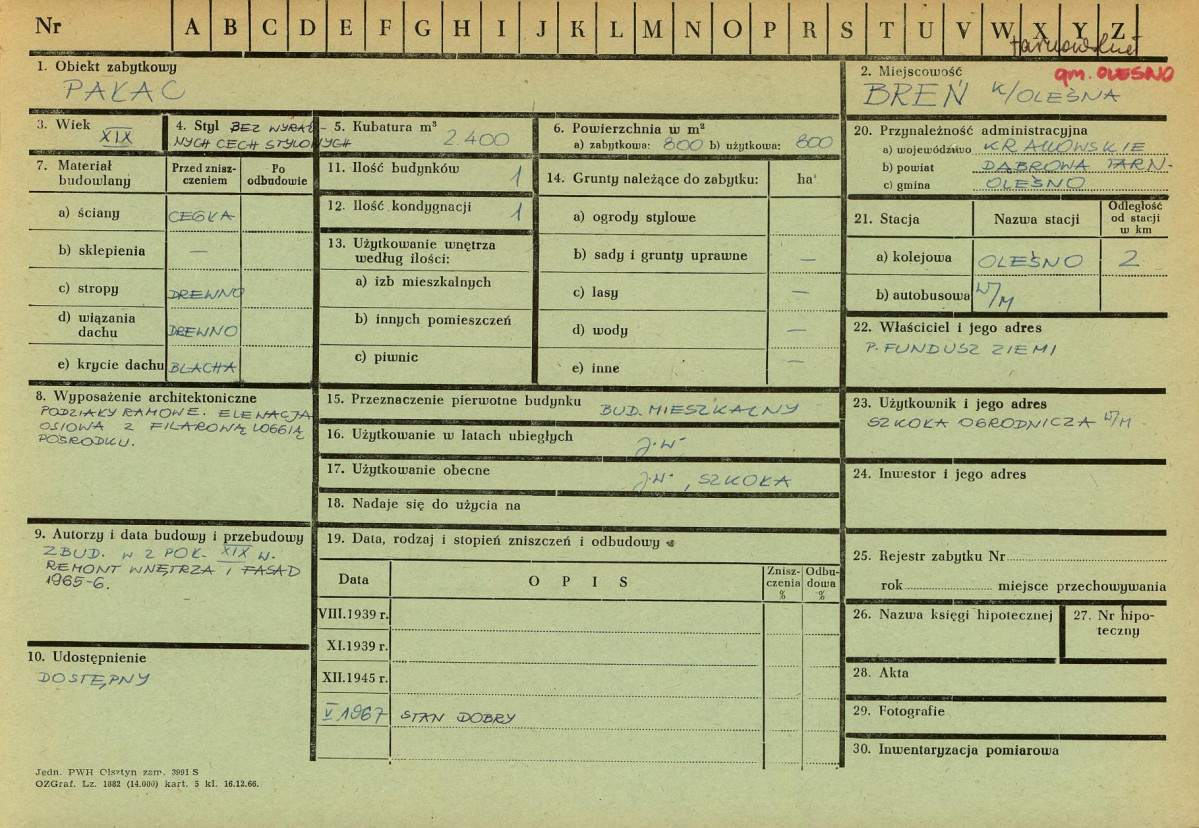 Nr A B C D E F G H I J K L M N O P R S T U V W X Y Z
tarnowskie
1. Obiekt zabytkowy
PAŁAC
2. Miejscowość
gm. OLEŚNO
BREŃ K/OLEŚNA
3. Wiek
XIX
4. Styl BEZ WYRAŹ-
NYCH CECH STYLOWYCH
5. Kubatura m³
2.400
6. Powierzchnia w m²
a) zabytkowa: 800 b) użytkowa: 800
7. Materiał
budowlany
Przed znisz-
czeniem
Po
odbudowie
a) ściany CEGŁA
b) sklepienia —
c) stropy DREWNO
d) wiązania
dachu DREWNO
e) krycie dachu BLACHA
8. Wyposażenie architektoniczne
PODZIAŁY RAMOWE. ELEWACJA
OSIOWA Z FILAROWĄ LOGGIĄ
POŚRODKU.
9. Autorzy i data budowy i przebudowy
ZBUD. W 2 POŁ. XIX W.
REMONT WNĘTRZA I FASAD
1965-6.
10. Udostępnienie
DOSTĘPNY
11. Ilość budynków 1
12. Ilość kondygnacji 1
13. Użytkowanie wnętrza
według ilości:
a) izb mieszkalnych
b) innych pomieszczeń
c) piwnic
14. Grunty należące do zabytku: ha
a) ogrody stylowe
b) sady i grunty uprawne —
c) lasy —
d) wody —
e) inne —
15. Przeznaczenie pierwotne budynku BUD. MIESZKALNY
16. Użytkowanie w latach ubiegłych J.W.
17. Użytkowanie obecne J.W., SZKOŁA
18. Nadaje się do użycia na
19. Data, rodzaj i stopień zniszczeń i odbudowy
Data
OPIS
Znisz-
czenia
%
Odbu-
dowa
%
VIII.1939 r.
XI.1939 r.
XII.1945 r.
V 1967 STAN DOBRY
20. Przynależność administracyjna
a) województwo KRAKOWSKIE
b) powiat DĄBROWA TARN-
c) gmina OLEŚNO
21. Stacja
Nazwa stacji
Odległość
od stacji
w km
a) kolejowa OLEŚNO 2
b) autobusowa W/M
22. Właściciel i jego adres
P. FUNDUSZ ZIEMI
23. Użytkownik i jego adres
SZKOŁA OGRODNICZA W/M
24. Inwestor i jego adres
25. Rejestr zabytku Nr
rok miejsce przechowywania
26. Nazwa księgi hipotecznej
27. Nr hipo-
teczny
28. Akta
29. Fotografie
30. Inwentaryzacja pomiarowa
Jedn. PWH Olsztyn zam. 3991 S
OZGraf. Lz. 1882 (14.000) kart. 5 kl. 16.12.66.